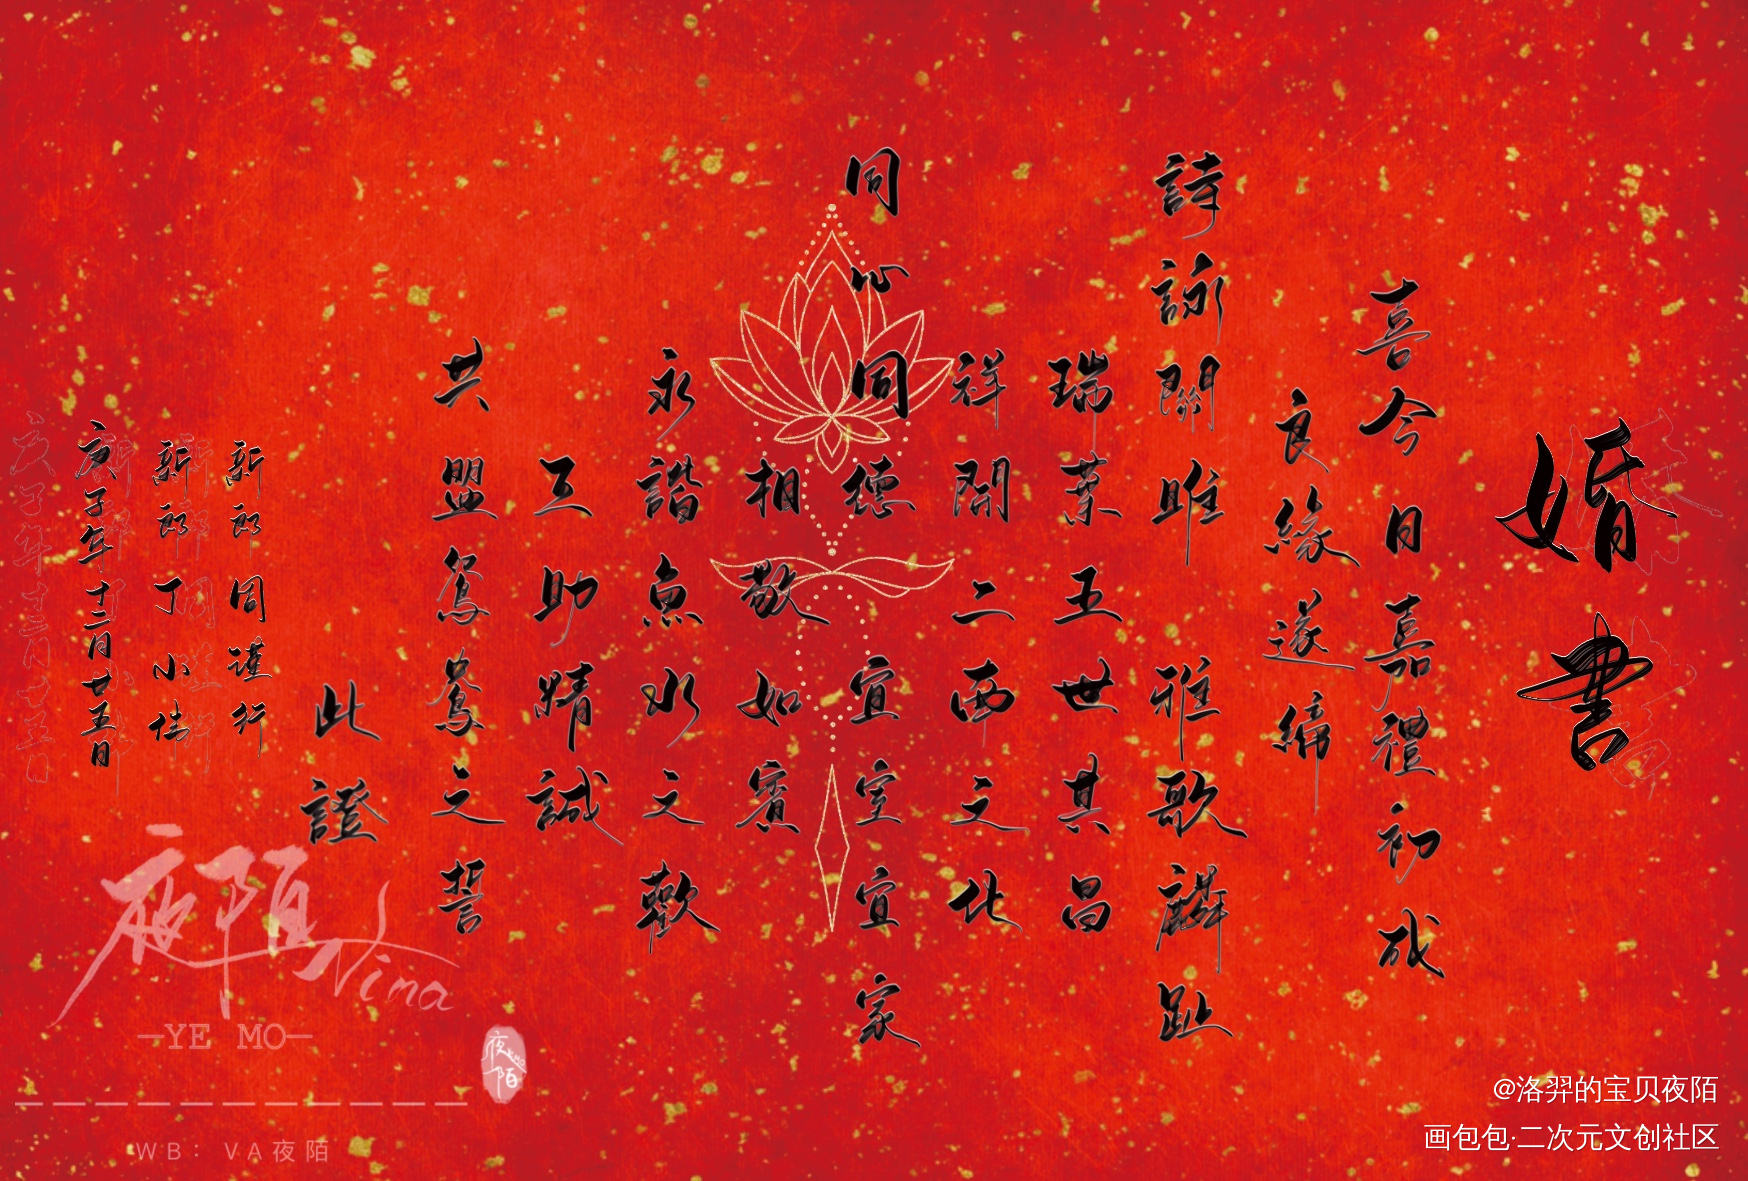 婚書
喜今日嘉禮初成
良緣遂締
詩詠關雎 雅歌麟趾
瑞葉五世其昌
祥開二西之化
同心同德 宜室宜家
相敬如賓
永諧魚水之歡
互助精誠
共盟鴛鴦之誓
此證
新郎 周謹行
新郎 丁小偉
庚子年十二月廿五日
夜陌
Vina
—YE MO—
夜陌
WB: VA夜陌
@洛羿的宝贝夜陌
画包包·二次元文创社区